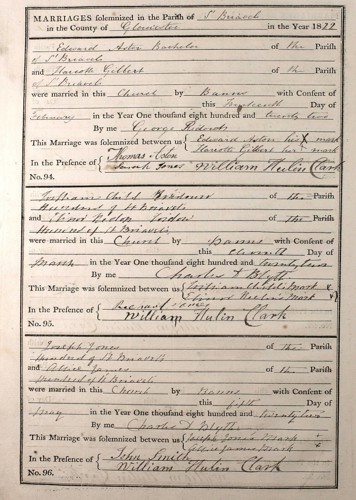 MARRIAGES solemnized in the Parish of St Briavels
in the County of Gloucester in the Year 1822
Edward Aston Bachelor of the Parish
of St Briavels
and Harriotte Gilbert of the Parish
of St Briavels
were married in this Church by Banns with Consent of
this Day of
February in the Year One thousand eight hundred and twenty two
By me George
This Marriage was solemnized between us Edward Aston his X mark
Harriotte Gilbert her mark
In the Presence of Thomas Aston
James Jones William Hulin Clark
No. 94.
William Child
Hundred of St Briavels of the Parish
and of the Parish
Hundred of St Briavels
were married in this Church by Banns with Consent of
this Day of
March in the Year One thousand eight hundred and twenty two
By me Charles D Blyth
This Marriage was solemnized between us William Child Mark
Mark
In the Presence of Richard James
William Hulin Clark
No. 95.
Joseph Jones of the Parish
Hundred of St Briavels
and James of the Parish
Hundred of St Briavels
were married in this Church by Banns with Consent of
this fifth Day of
May in the Year One thousand eight hundred and twenty two
By me Charles D Blyth
This Marriage was solemnized between us Joseph Jones Mark
James Mark
In the Presence of John Smith
William Hulin Clark
No. 96.